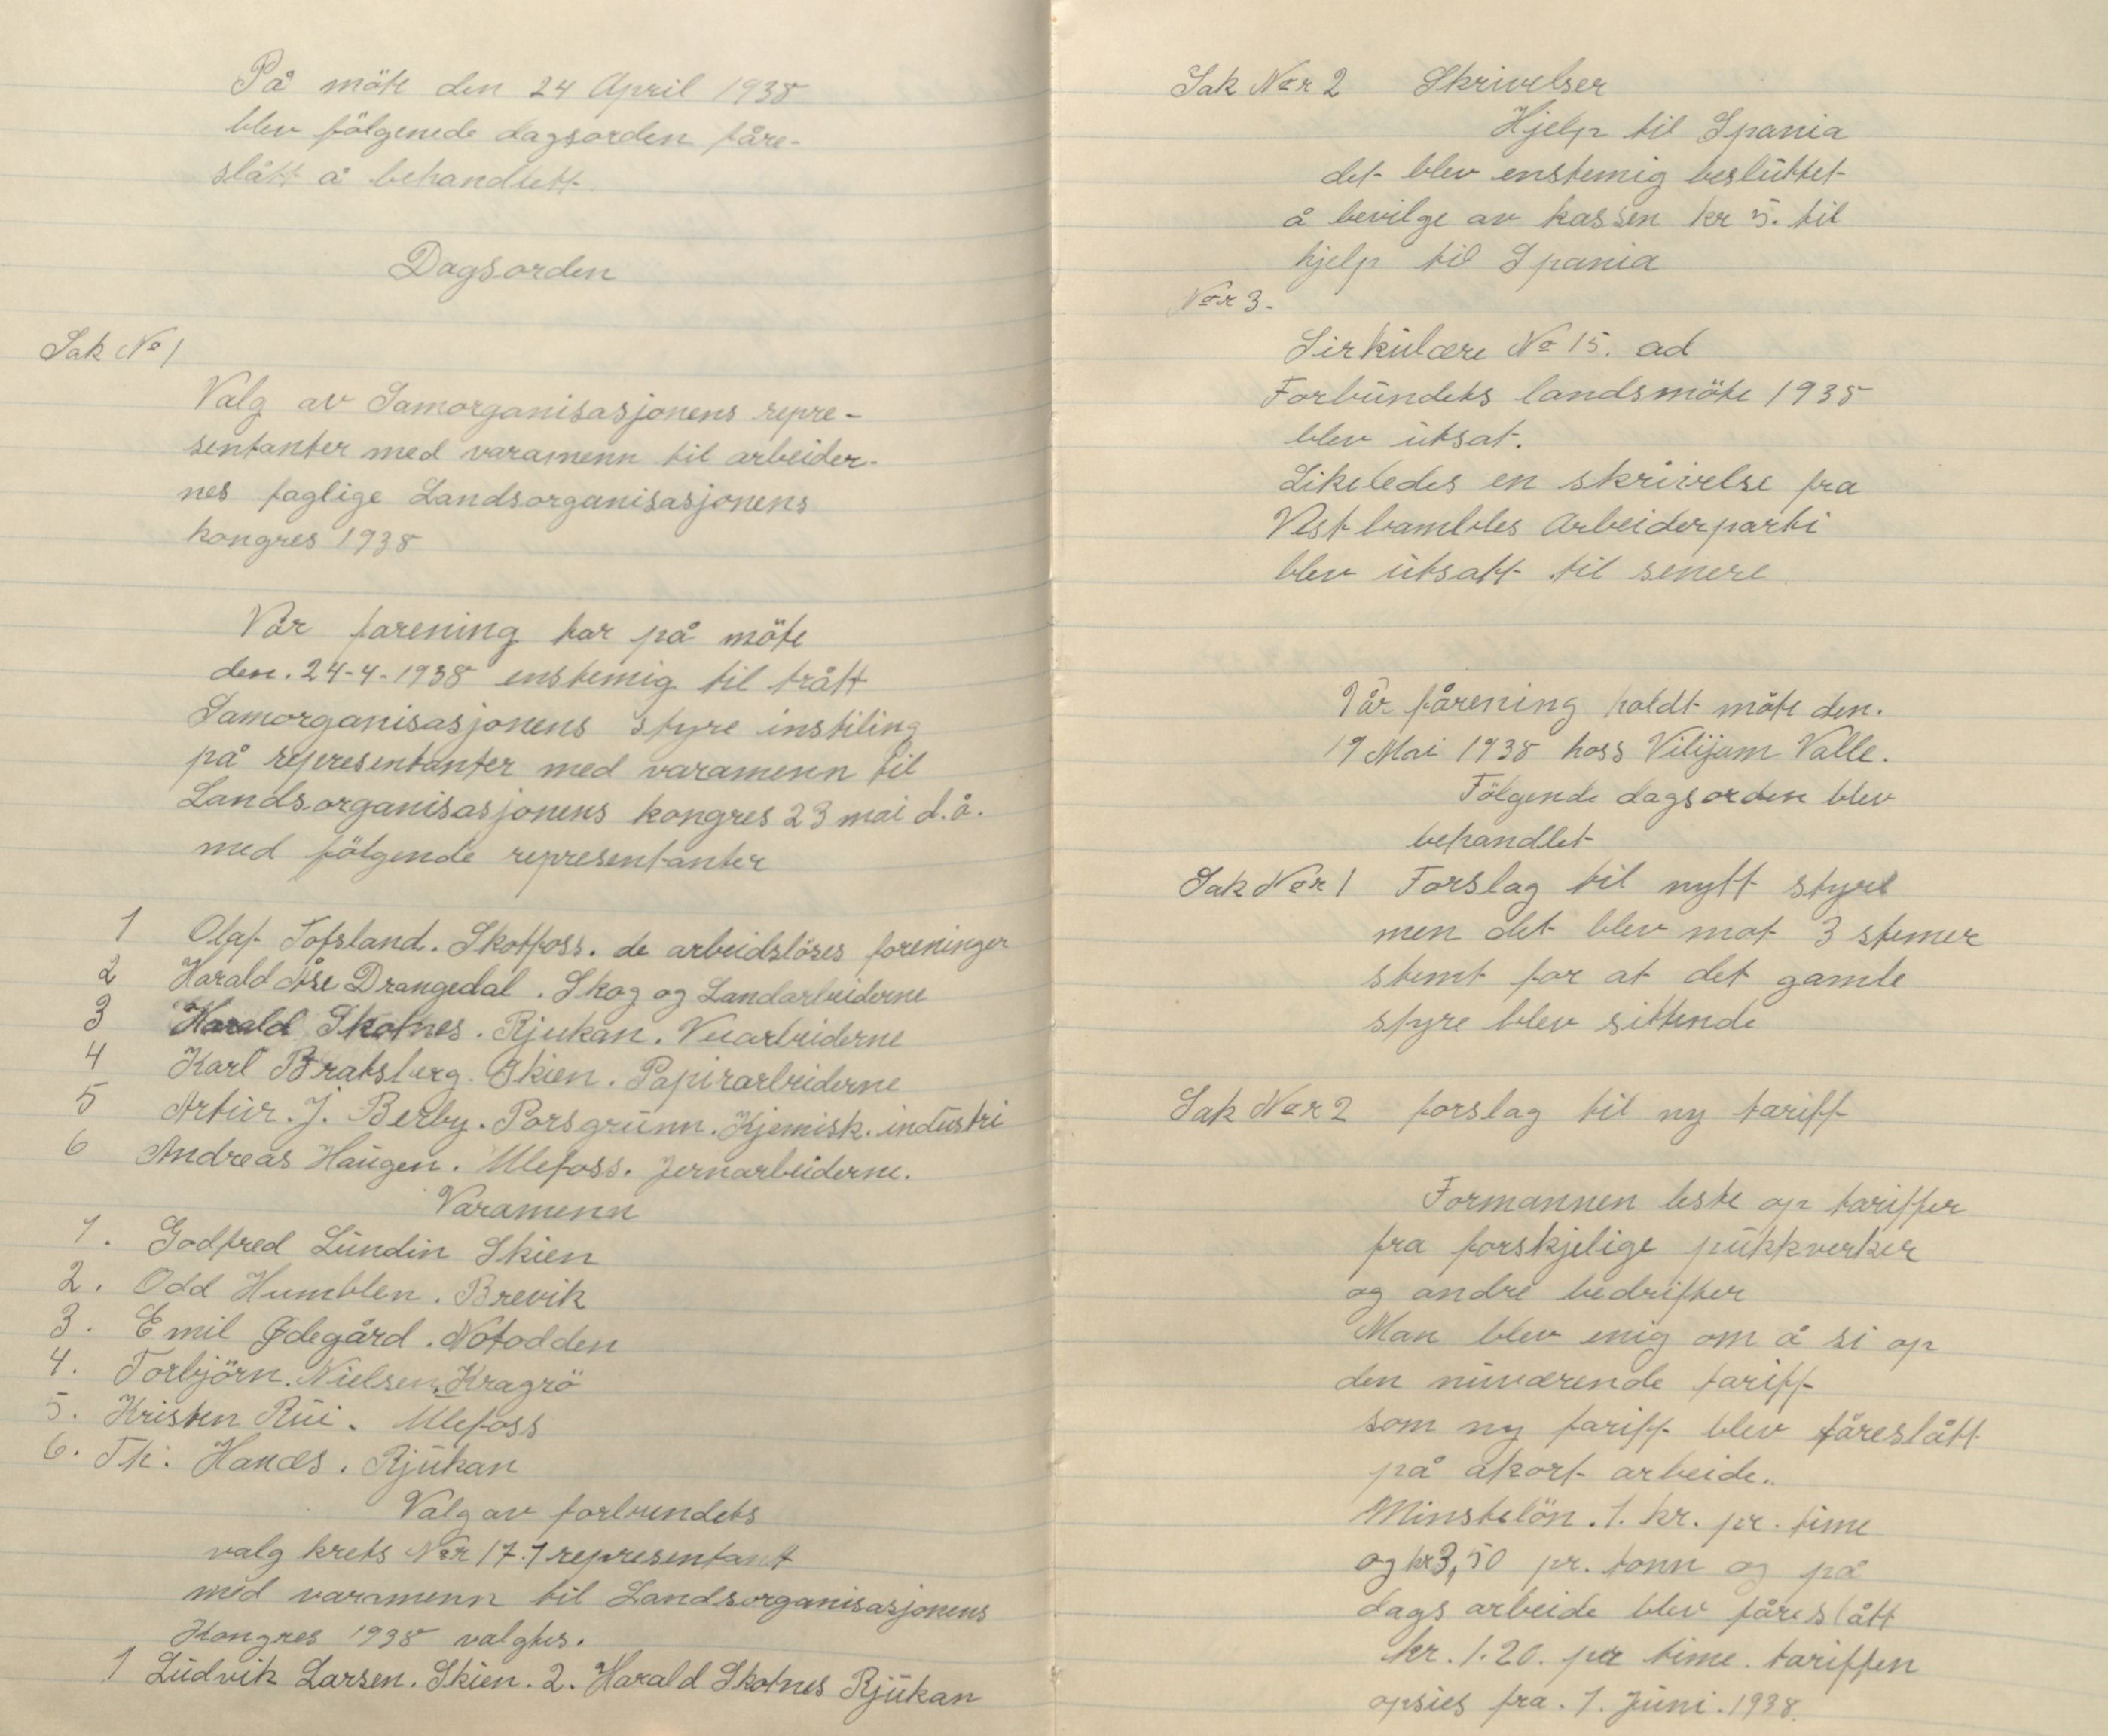 På möte den 24 April 1938
blev fölgenede dagsorden fåre-
slått å behandlett.
Dagsorden
Sak No 1
Valg av Samorganisasjonens repre-
sentanter med varamenn til arbeider-
nes faglige Landsorganisasjonens
kongres 1938
Vår forening har på möte
den. 24-4-1938 enstemig til trått
Samorganisasjonens styre instiling
på representanter med varamenn til
Landsorganisasjonens kongres 23 mai d.å.
med fölgende representanter
1 Olaf Tofsland. Skotfoss. de arbeidslöses foreninger
2 Harald Åse Drangedal. Skog og Landarbeiderne
3 Harald Skotnes. Rjukan. Veiarbeiderne
4 Karl Bratsberg. Skien. Papirarbeiderne
5 Artur. J. Berby. Porsgrunn. Kjemisk. industri
6 Andreas Haugen. Ulefoss. Jernarbeiderne.
Varamenn
1. Godfred Lundin Skien
2. Odd Humblen. Brevik
3. Emil Ødegård. Notodden
4. Torbjörn. Nielsen. Kragrö
5. Kristen Rui. Ulefoss
6. Th: Rjukan
Valg av forbundets
valg krets Nor 17. 1 representant
med varamenn til Landsorganisasjonens
Kongres 1938 valgtes.
1 Ludvik Larsen. Skien. 2. Harald Skotnes Rjukan
Sak Nor 2 Skrivelser
Hjelp til Spania
det blev enstemig besluttet
å bevilge av kassen kr 5. til
hjelp til Spania
Nor 3.
Sirkulære No 15. ad
Forbundets landsmöte 1938
blev utsat.
Likeledes en skrivelse fra
Vest bambles Arbeiderparti
blev utsatt til senere.
Vår fårening holdt möte den.
19 Mai 1938 hoss Vilijam Valle.
Fölgende dagsorden blev
behandlet
Sak Nor 1 Forslag til nytt styre
men det blev mot 3 stemer
stemt for at det gamle
styre blev sittende
Sak Nor 2 forslag til ny tariff
Formannen leste op tariffer
fra forskjelige pukkverker
og andre bedrifter
Man blev enig om å si op
den nuværende tariff
som ny tariff blev fåreslått
på akort arbeide..
Minstelön. 1. kr. pr. time
og kr 3,50 pr. tonn og på
dags arbeide blev fåreslått
kr. 1.20. per time. tariffen
opsies fra. 1. Juni. 1938.